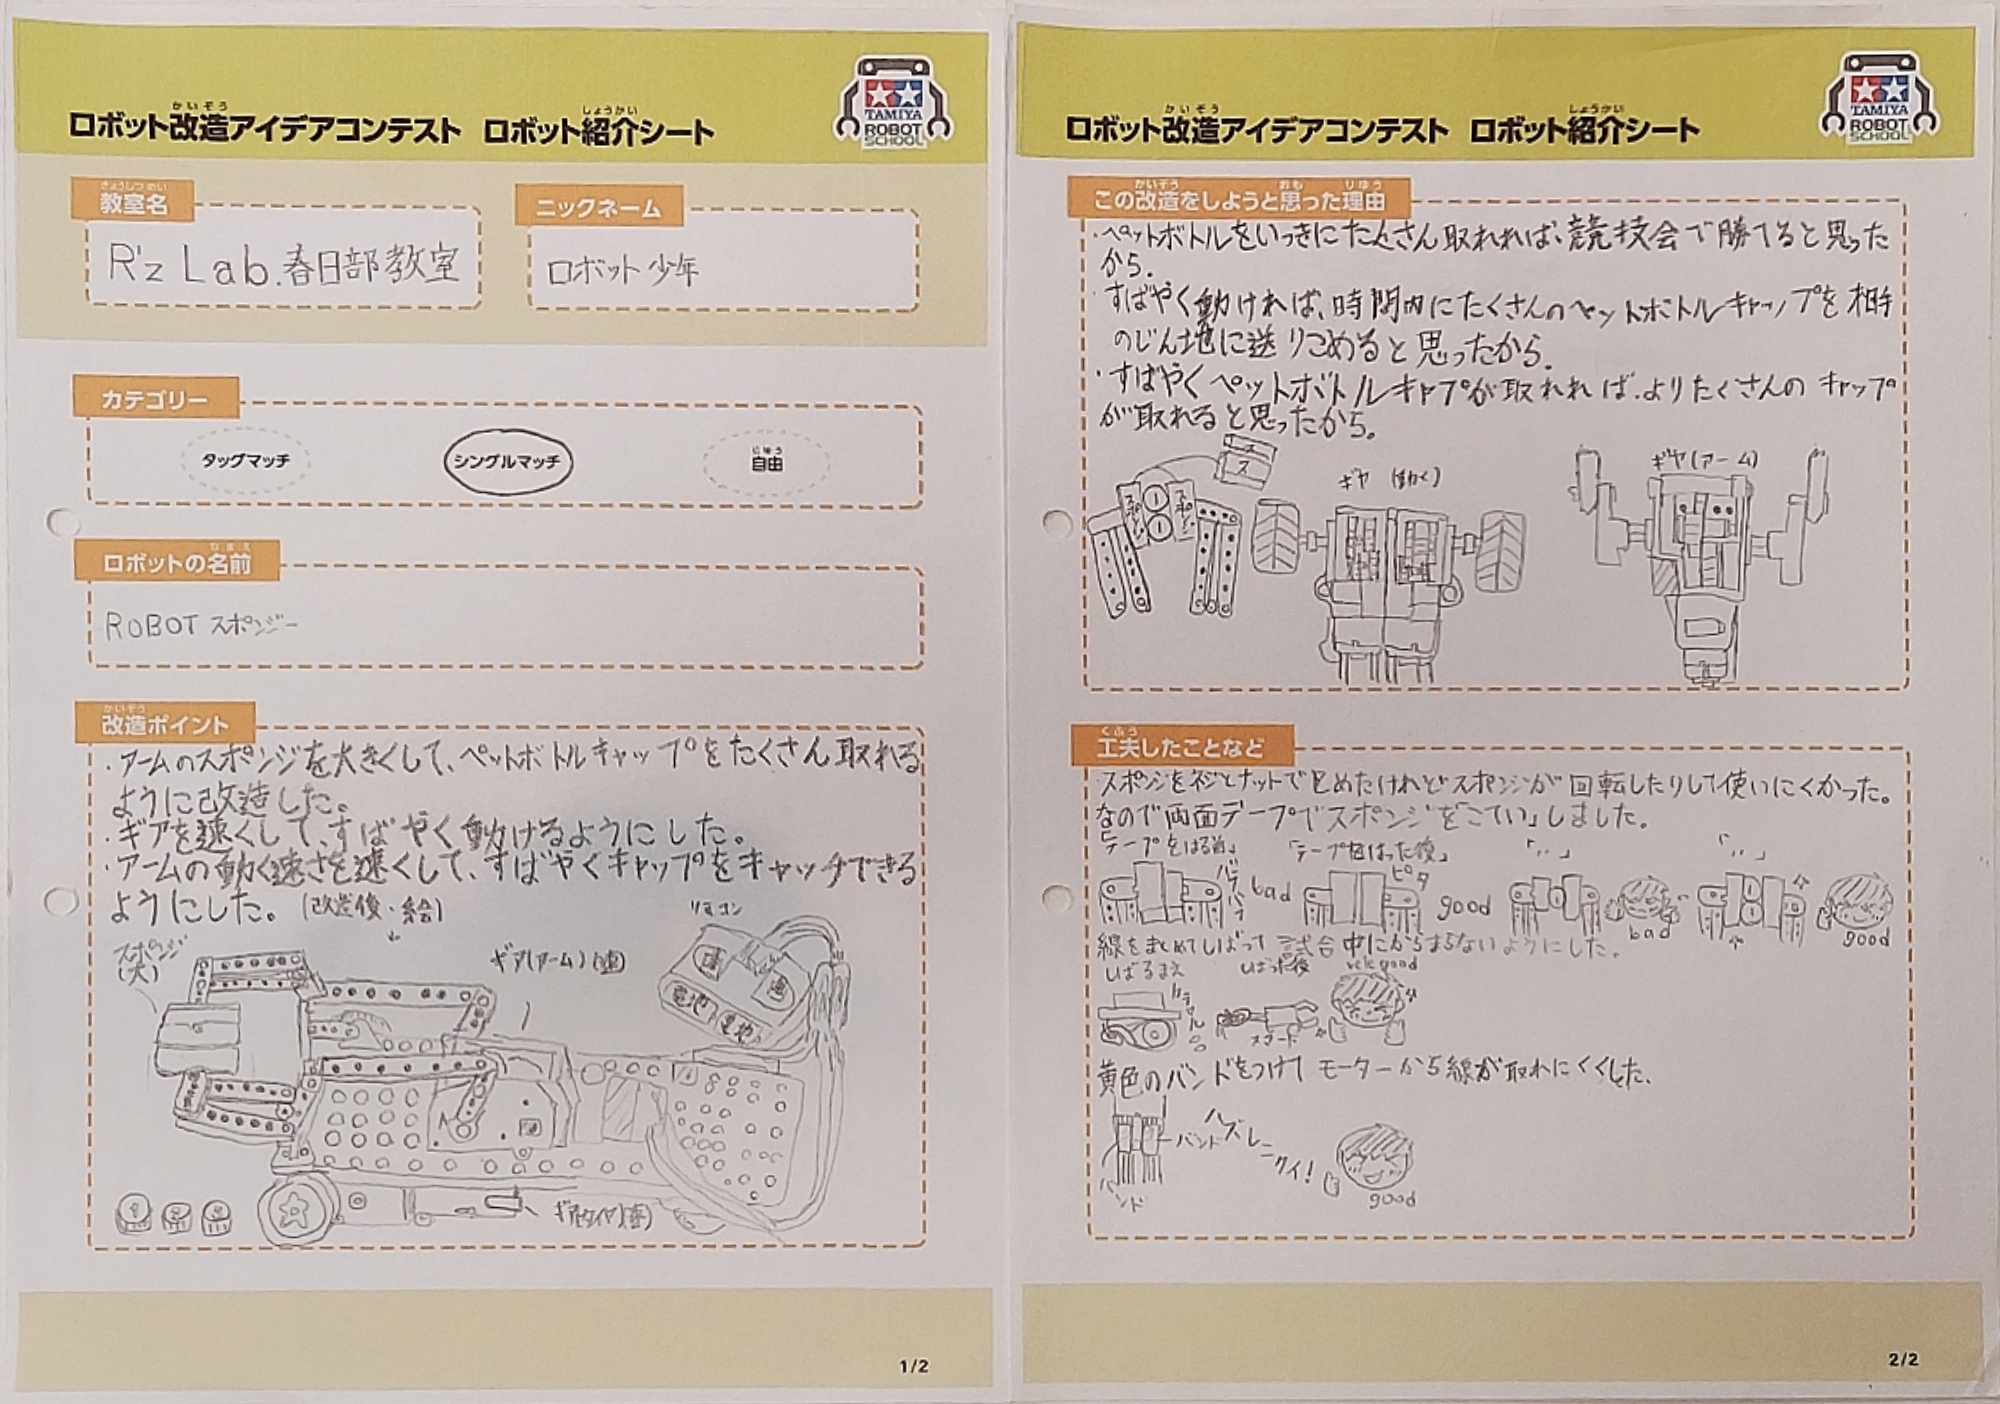 かいぞう しょうかい
ロボット改造アイデアコンテスト ロボット紹介シート
TAMIYA
ROBOT
SCHOOL
きょうしつめい
教室名
R'z Lab.春日部教室
ニックネーム
ロボット少年
カテゴリー
タッグマッチ
シングルマッチ
じゆう
自由
なまえ
ロボットの名前
ROBOT スポンジー
かいぞう
改造ポイント
・アームのスポンジを大きくして、ペットボトルキャップをたくさん取れる
ように改造した。
・ギアを速くして、すばやく動けるようにした。
・アームの動く速さを速くして、すばやくキャップをキャッチできる
ようにした。(改造後・絵)
スポンジ
(大)
ギア(アーム)(速)
リモコン
電池 電池
1/2
かいぞう しょうかい
ロボット改造アイデアコンテスト ロボット紹介シート
TAMIYA
ROBOT
SCHOOL
かいぞう おも りゆう
この改造をしようと思った理由
・ペットボトルをいっきにたくさん取れれば、競技会で勝てると思った
から。
・すばやく動ければ、時間内にたくさんのペットボトルキャップを相手
のじん地に送りこめると思ったから。
・すばやくペットボトルキャプが取れれば、よりたくさんのキャップ
が取れると思ったから。
ギヤ(動く)
ギヤ(アーム)
くふう
工夫したことなど
・スポンジをネジとナットで止めたけれどスポンジが回転したりして使いにくかった。
なので両面テープでスポンジを「こてい」しました。
「テープをはる前」 「テープをはった後」 「〃」 「〃」
バラバラ bad ピタ good bad good
線をまとめてしばって試合中にからまらないようにした。
しばるまえ しばった後 good
黄色のバンドをつけてモーターから線が取れにくくした。
バンド
バンド
ハズレーナイ!
good
2/2